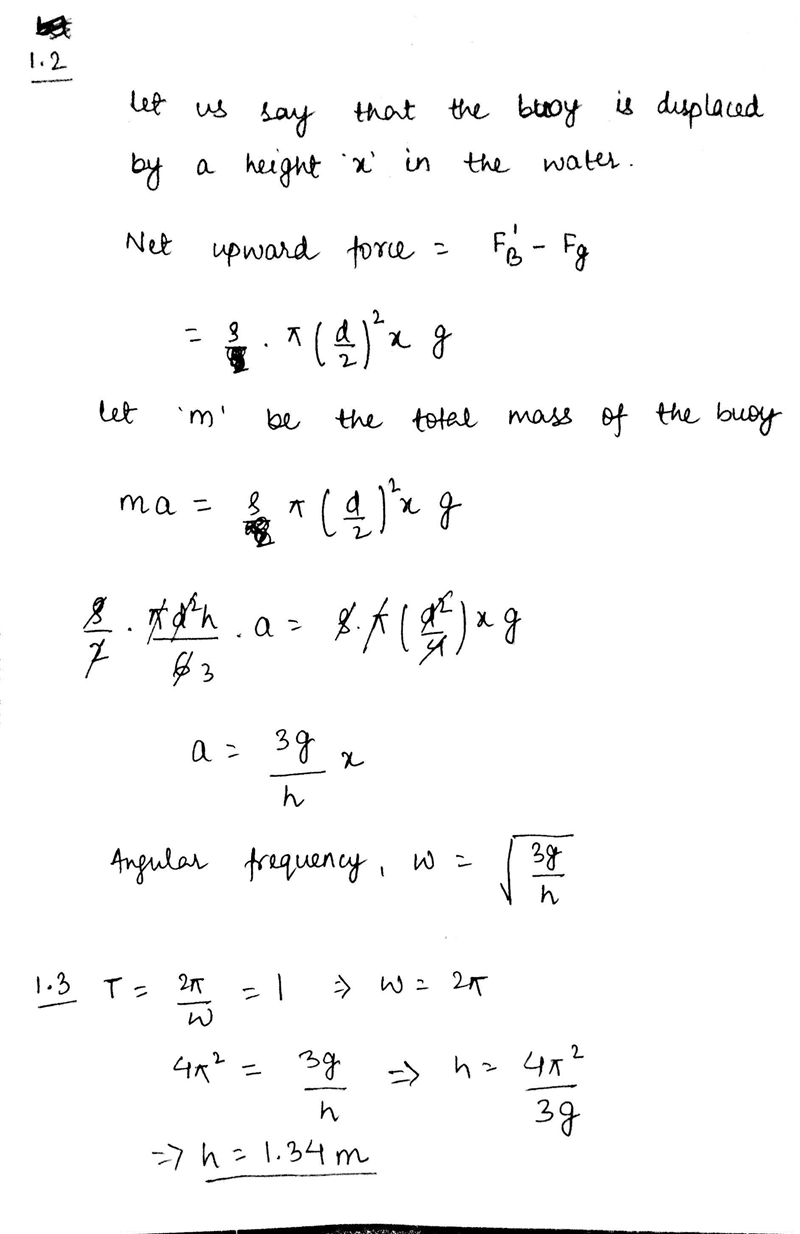 1.2
Let us say that the buoy is displaced
by a height 'x' in the water.
Net upward force = F'_B - F_g
= ρ . π (d/2)² x g
Let 'm' be the total mass of the buoy
ma = ρ π (d/2)² x g
ρ/2 . πd²h/6 3 . a = ρ . π (d²/4) x g
a = 3g/h x
Angular frequency, ω = √(3g/h)
1.3 T = 2π/ω = 1 ⇒ ω = 2π
4π² = 3g/h ⇒ h = 4π²/3g
⇒ h = 1.34 m